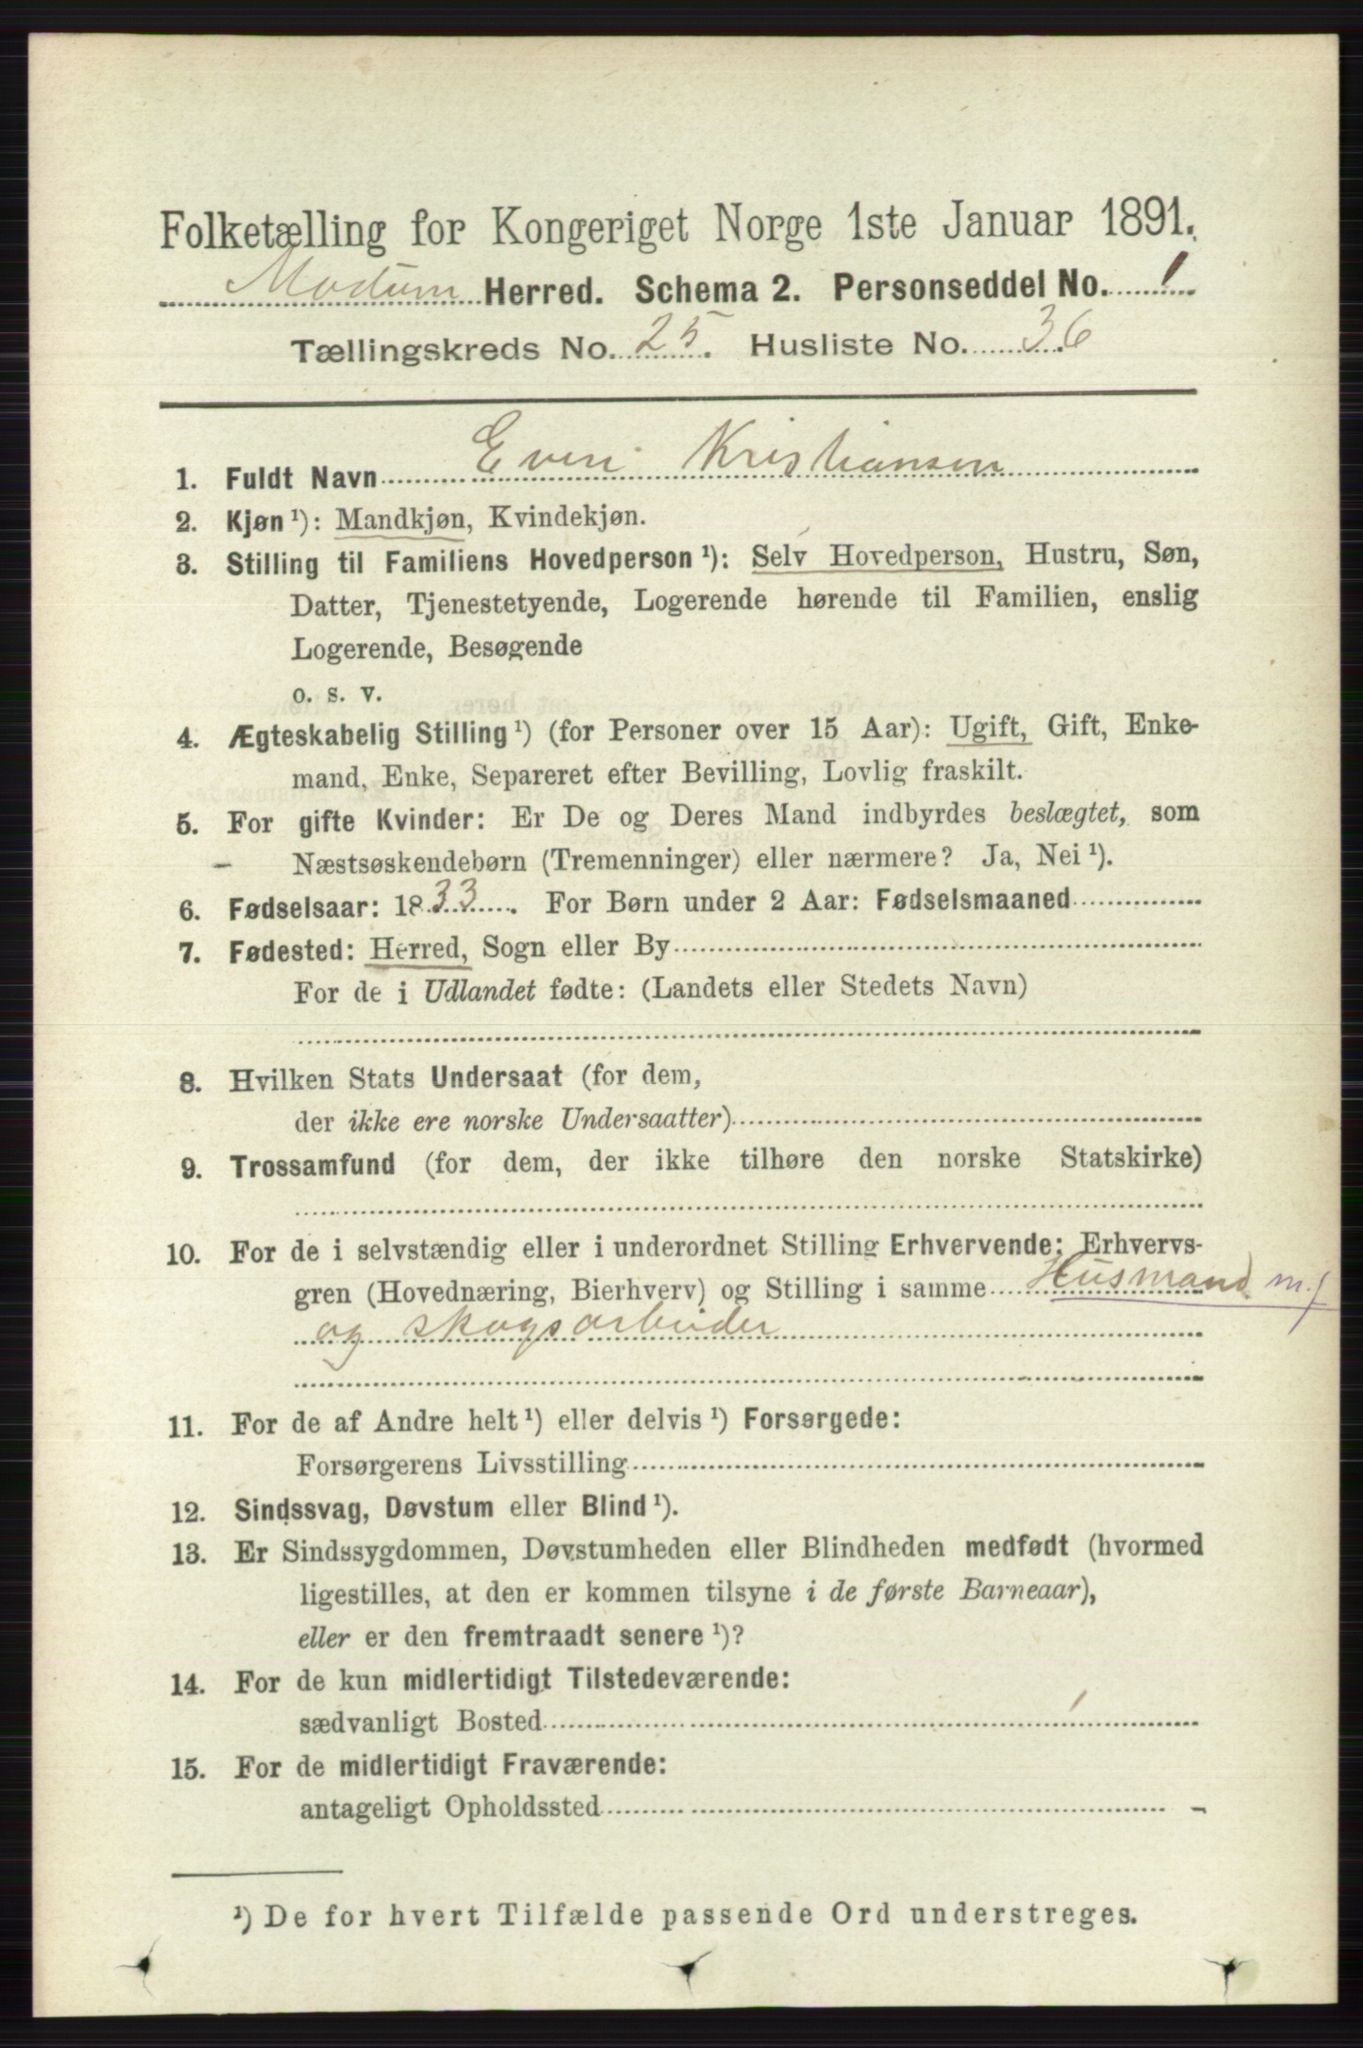 Folketælling for Kongeriget Norge 1ste Januar 1891.
Modum Herred. Schema 2. Personseddel No. 1
Tællingskreds No. 25. Husliste No. 36
1. Fuldt Navn Even Kristiansen
2. Kjøn ¹): Mandkjøn, Kvindekjøn.
3. Stilling til Familiens Hovedperson ¹): Selv Hovedperson, Hustru, Søn,
Datter, Tjenestetyende, Logerende hørende til Familien, enslig
Logerende, Besøgende
o. s. v.
4. Ægteskabelig Stilling ¹) (for Personer over 15 Aar): Ugift, Gift, Enke-
mand, Enke, Separeret efter Bevilling, Lovlig fraskilt.
5. For gifte Kvinder: Er De og Deres Mand indbyrdes beslægtet, som
– Næstsøskendebørn (Tremenninger) eller nærmere? Ja, Nei ¹).
6. Fødselsaar: 1833. For Børn under 2 Aar: Fødselsmaaned
7. Fødested: Herred, Sogn eller By
For de i Udlandet fødte: (Landets eller Stedets Navn)
8. Hvilken Stats Undersaat (for dem,
der ikke ere norske Undersaatter)
9. Trossamfund (for dem, der ikke tilhøre den norske Statskirke)
10. For de i selvstændig eller i underordnet Stilling Erhvervende: Erhvervs-
gren (Hovednæring, Bierhverv) og Stilling i samme Husmand m.j
og skogsarbeider
11. For de af Andre helt ¹) eller delvis ¹) Forsørgede:
Forsørgerens Livsstilling
12. Sindssvag, Døvstum eller Blind ¹).
13. Er Sindssygdommen, Døvstumheden eller Blindheden medfødt (hvormed
ligestilles, at den er kommen tilsyne i de første Barneaar),
eller er den fremtraadt senere ¹)?
14. For de kun midlertidigt Tilstedeværende:
sædvanligt Bosted
15. For de midlertidigt Fraværende:
antageligt Opholdssted
¹) De for hvert Tilfælde passende Ord understreges.